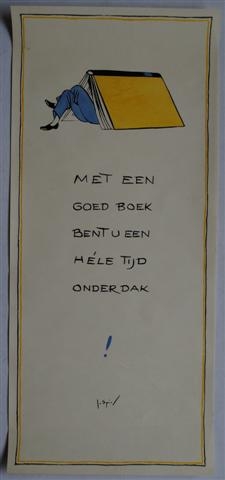 MET EEN
GOED BOEK
BENT U EEN
HÉLE TIJD
ONDERDAK
!